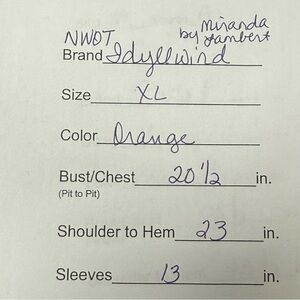 NWOT by Miranda Lambert
Brand Idyllwind
Size XL
Color Orange
Bust/Chest 20 1/2 in.
(Pit to Pit)
Shoulder to Hem 23 in.
Sleeves 13 in.